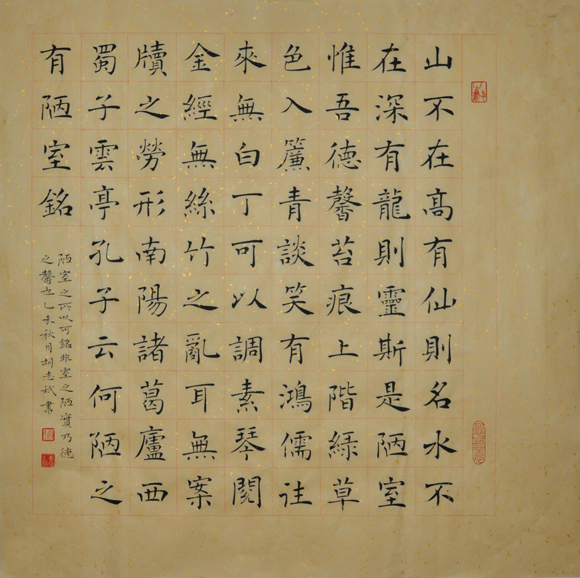 山不在高有仙則名水不
在深有龍則靈斯是陋室
惟吾德馨苔痕上階綠草
色入簾青談笑有鴻儒往
來無白丁可以調素琴閱
金經無絲竹之亂耳無案
牘之勞形南陽諸葛廬西
蜀子雲亭孔子云何陋之
有陋室銘
陋室之所以可銘非室之陋實乃德
之馨也乙未秋月胡志斌書